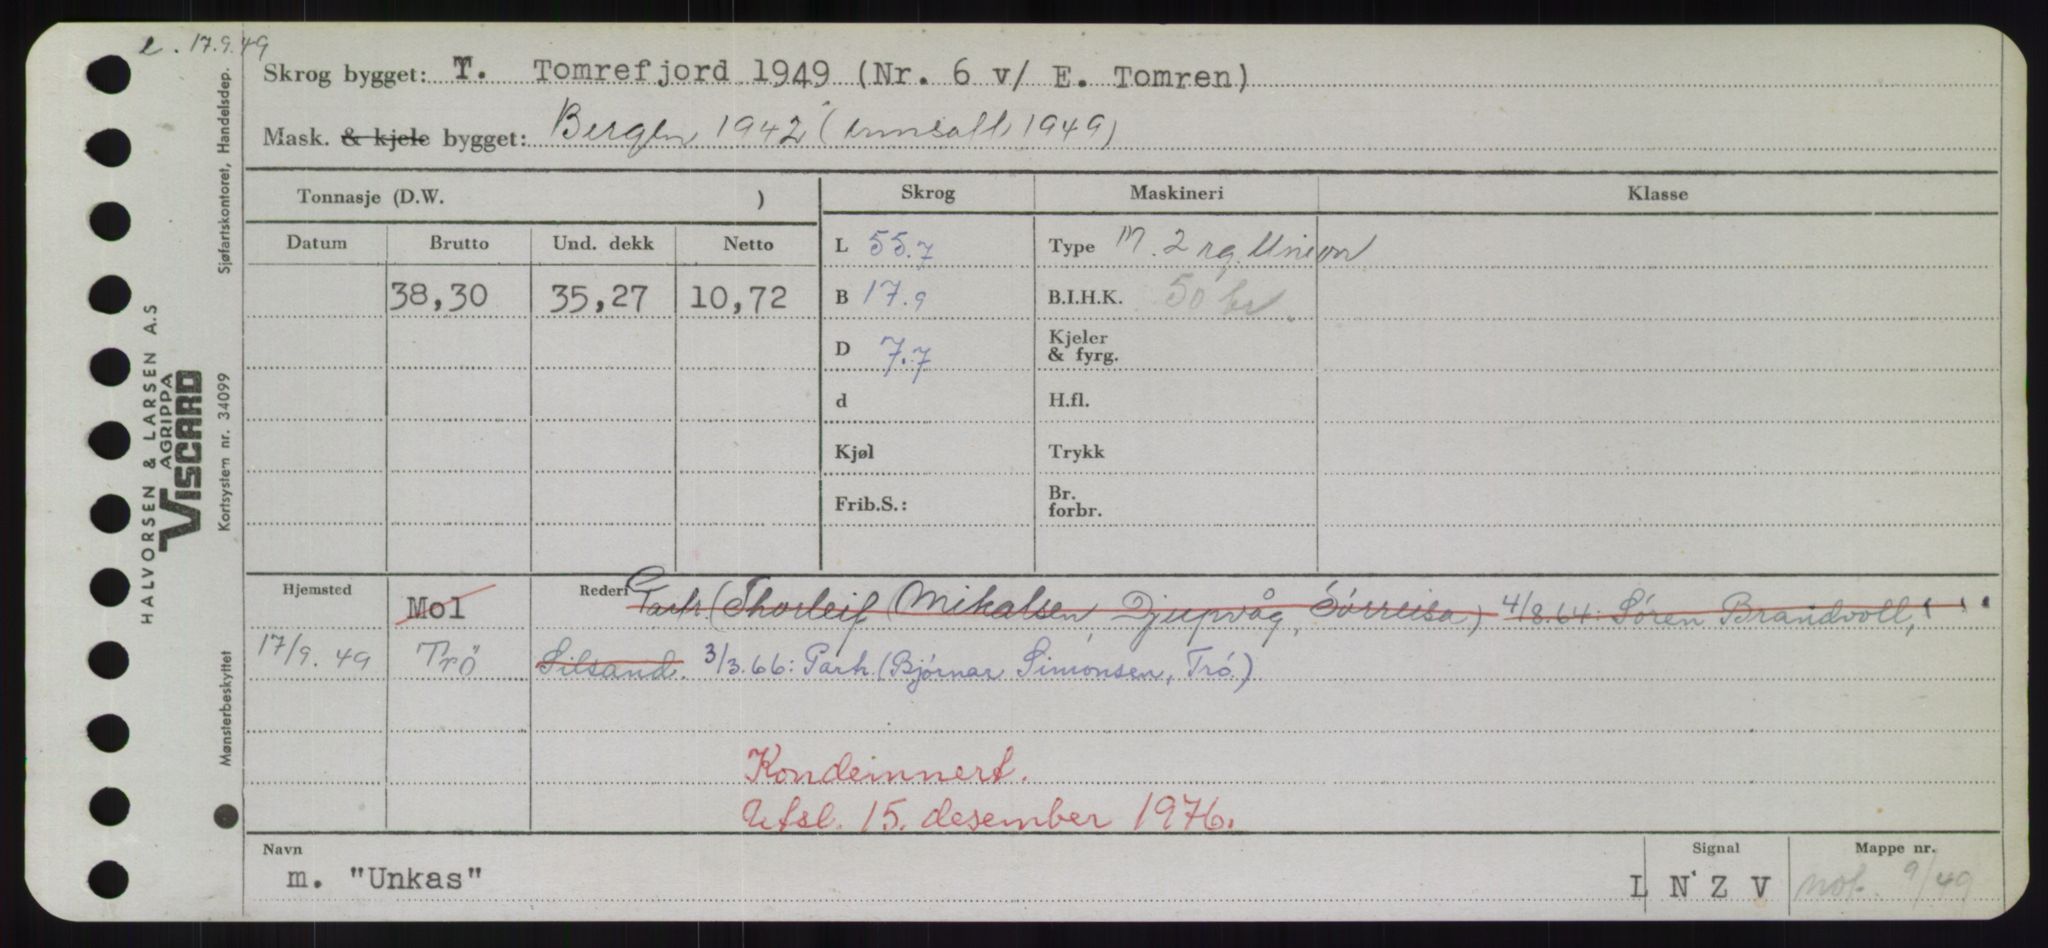 e. 17.9.49
Skrog bygget: T. Tomrefjord 1949 (Nr. 6 v/ E. Tomren)
Mask. & kjele bygget: Bergen 1942 (innsatt 1949)
Tonnasje (D.W. )
Skrog
Maskineri
Klasse
Datum Brutto Und. dekk Netto
38,30 35,27 10,72
L 55.7
B 17.9
D 7.7
d
Kjøl
Frib.S.:
Type M. 2 sg. Union
B.I.H.K. 50 br.
Kjeler
& fyrg.
H.fl.
Trykk
Br.
forbr.
Hjemsted Mol Rederi Partr. (Thorleif Mikalsen, Djupvåg, Sørreisa) 4/8.64: Søren Brandvoll,
17/9.49 Trö Silsand. 3/3.66: Partr. (Bjørnar Simonsen, Trö.)
Kondemnert.
Utsl. 15. desember 1976.
Navn
m. "Unkas"
Signal
L N Z V
Mappe nr.
not. 9/49
HALVORSEN & LARSEN A.S
AGRIPPA
VISCARD
Sjøfartskontoret, Handelsdep.
Kortsystem nr. 34099
Mønsterbeskyttet